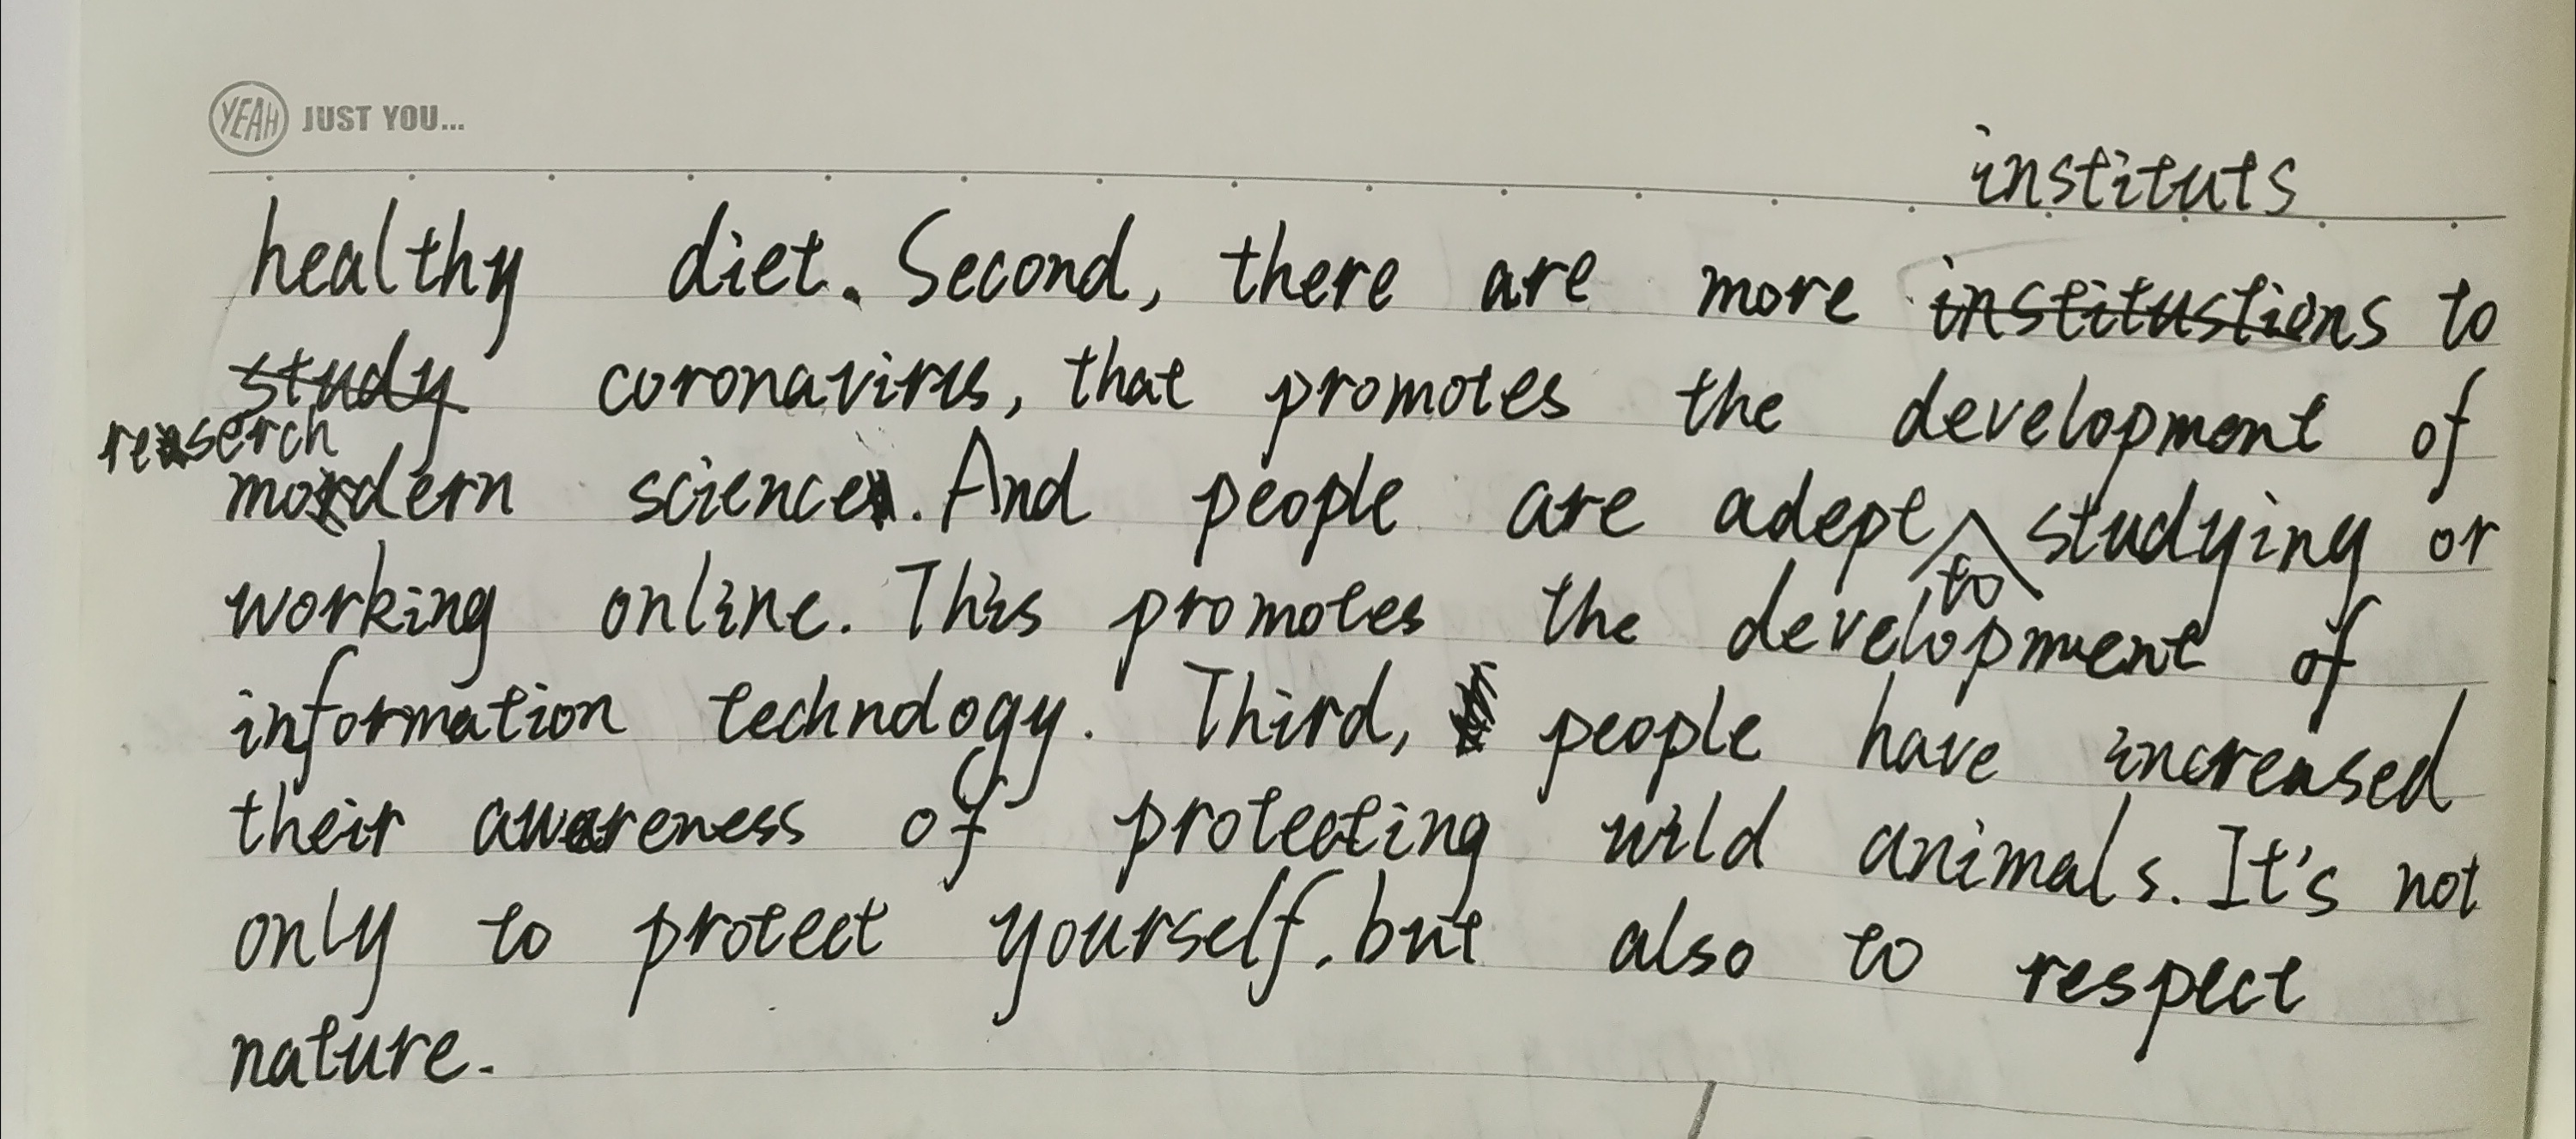 YEAH JUST YOU...
instituts
healthy diet. Second, there are more institustions to
study coronavirus, that promotes the development of
reserch
modern science. And people are adept to studying or
working online. This promotes the development of
information technology. Third, people have increased
their awareness of protecting wild animals. It's not
only to protect yourself, but also to respect
nature.